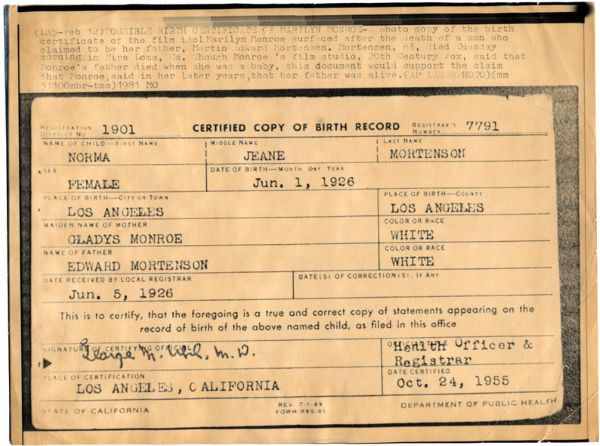 (LAS-Feb 12)POSSIBLE BIRTH CERTIFICATE OF MARILYN MONROE--A photo copy of the birth
certificate of the film idol Marilyn Monroe surfaced after the death of a man who
claimed to be her father, Martin Edward Mortensen. Mortensen, 83, died Tuesday
morning in Mira Loma, Ca. Though Monroe's film studio, 20th Century Fox, said that
Monroe's father died when she was a baby, this document would support the claim
that Monroe, said in her later years, that her father was alive. (AP LASERPHOTO)(mm
51400mbr-tms)1981 MO
REGISTRATION DISTRICT No. 1901 CERTIFIED COPY OF BIRTH RECORD REGISTRAR'S NUMBER 7791
NAME OF CHILD—FIRST NAME MIDDLE NAME LAST NAME
NORMA JEANE MORTENSON
SEX DATE OF BIRTH—MONTH, DAY, YEAR
FEMALE Jun. 1, 1926
PLACE OF BIRTH—CITY OR TOWN PLACE OF BIRTH—COUNTY
LOS ANGELES LOS ANGELES
MAIDEN NAME OF MOTHER COLOR OR RACE
GLADYS MONROE WHITE
NAME OF FATHER COLOR OR RACE
EDWARD MORTENSON WHITE
DATE RECEIVED BY LOCAL REGISTRAR DATE(S) OF CORRECTION(S), IF ANY
Jun. 5, 1926
This is to certify, that the foregoing is a true and correct copy of statements appearing on the
record of birth of the above named child, as filed in this office
SIGNATURE OF CERTIFYING OFFICIAL
George M. Uhl, M. D. Health Officer &
Registrar
PLACE OF CERTIFICATION DATE CERTIFIED
LOS ANGELES, CALIFORNIA Oct. 24, 1955
STATE OF CALIFORNIA REV. 7-1-49 DEPARTMENT OF PUBLIC HEALTH
FORM R&S-61